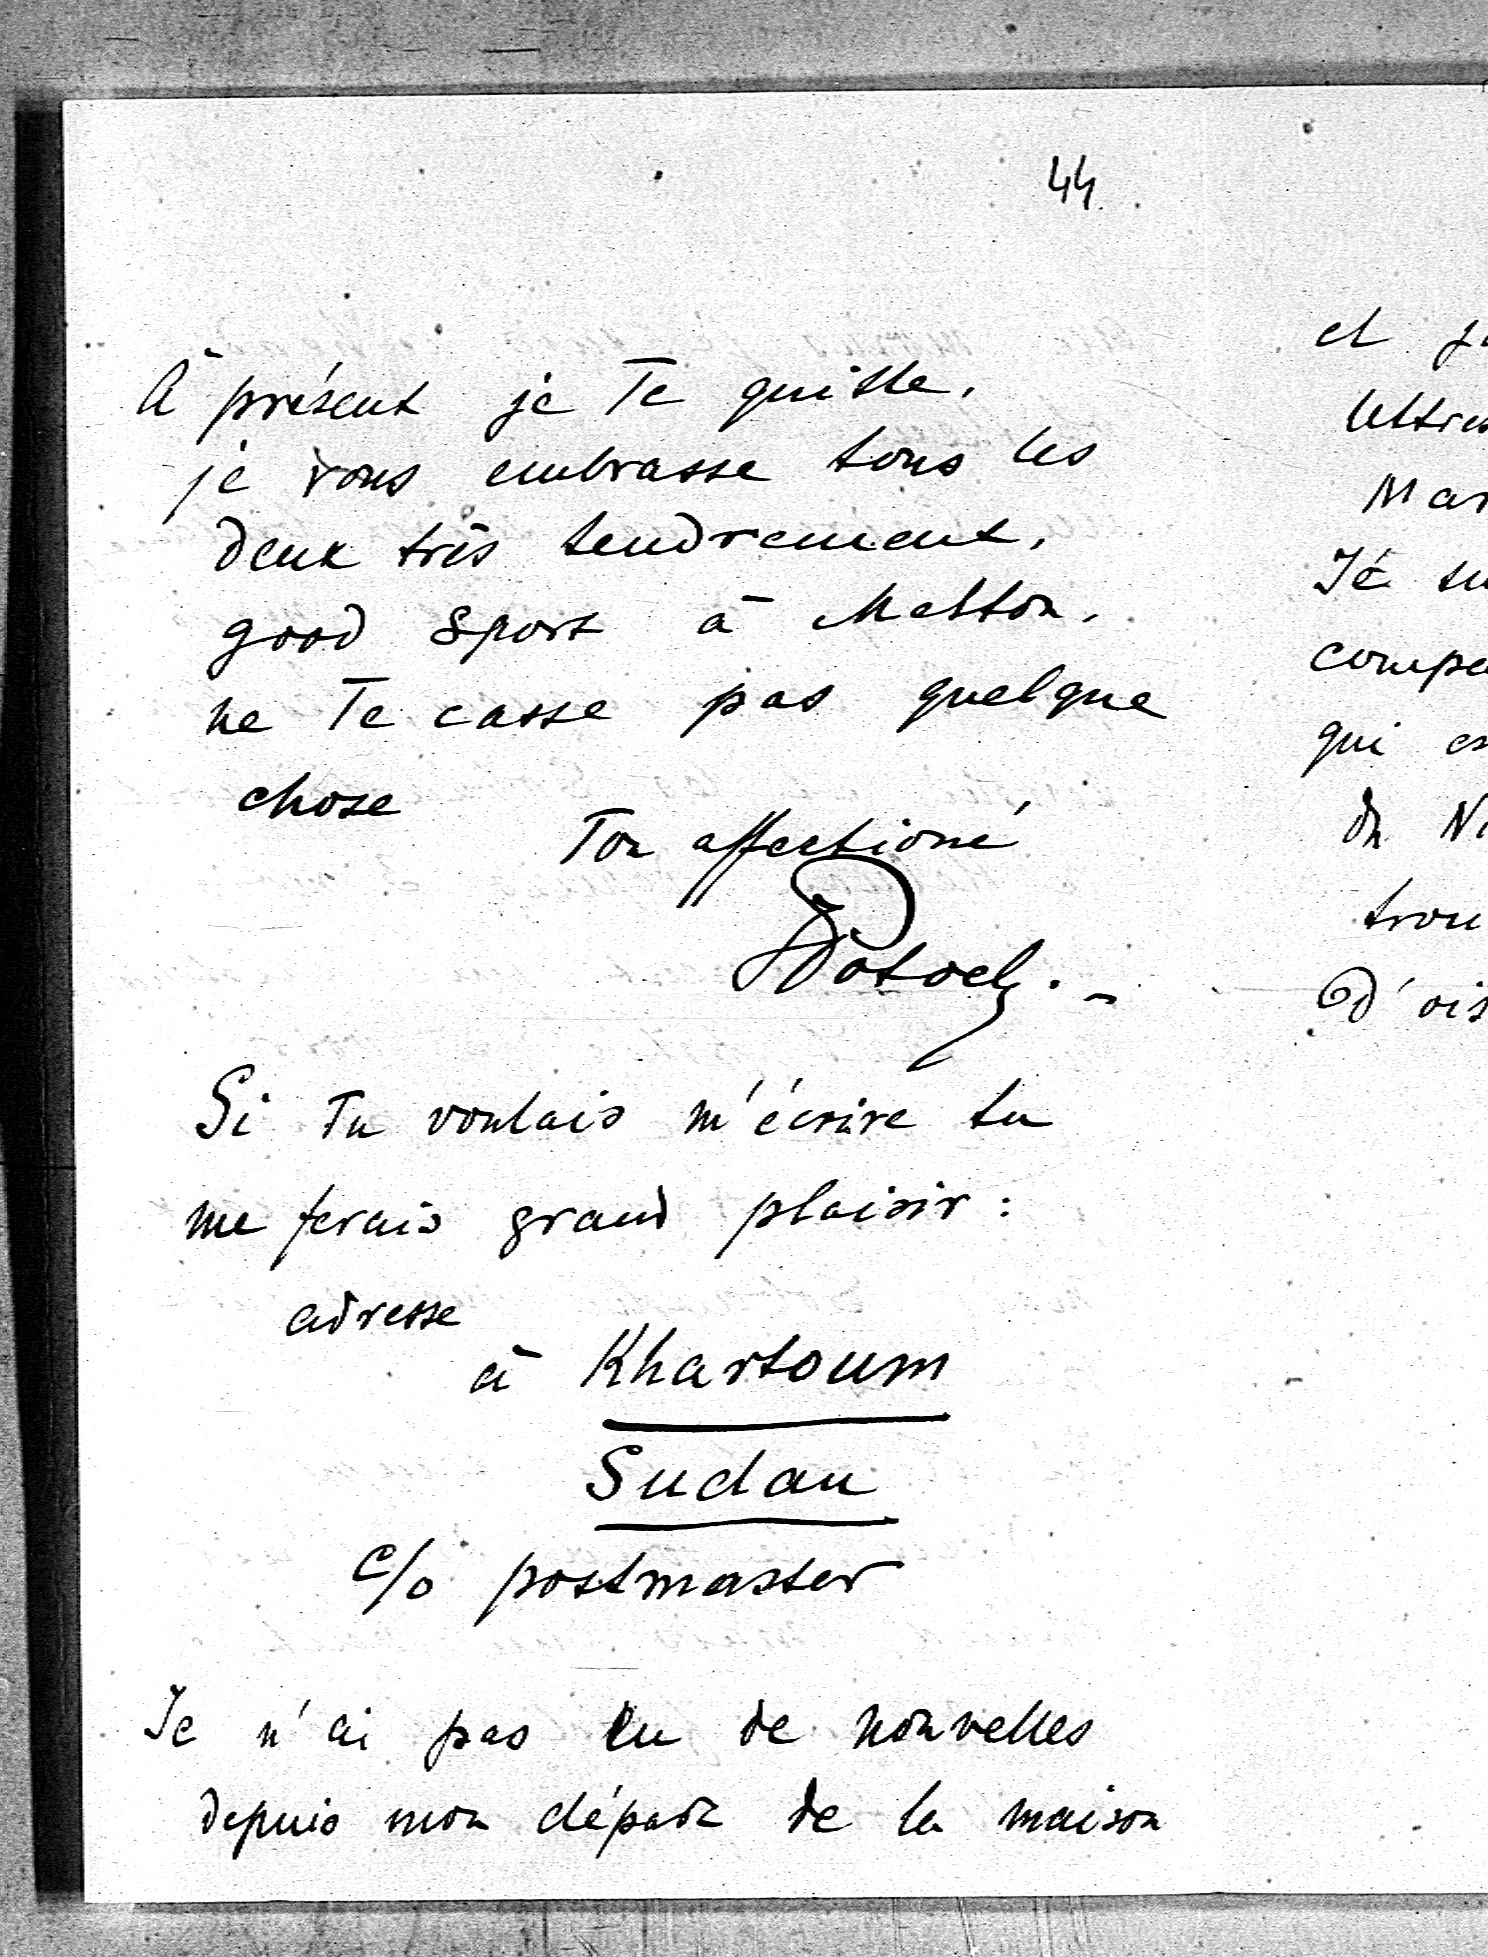 44.
À présent je Te quitte,
je vous embrasse tous les
deux très tendrement,
good sport à Melton,
ne Te casse pas quelque
chose
Ton affectioné
Potocki.-
Si Tu voulais m'écrire tu
me ferais grand plaisir :
adresse
à Khartoum
Sudan
c/o postmaster
Je n'ai pas eu de nouvelles
depuis mon départ de la maison
et
lettres
Je
qui